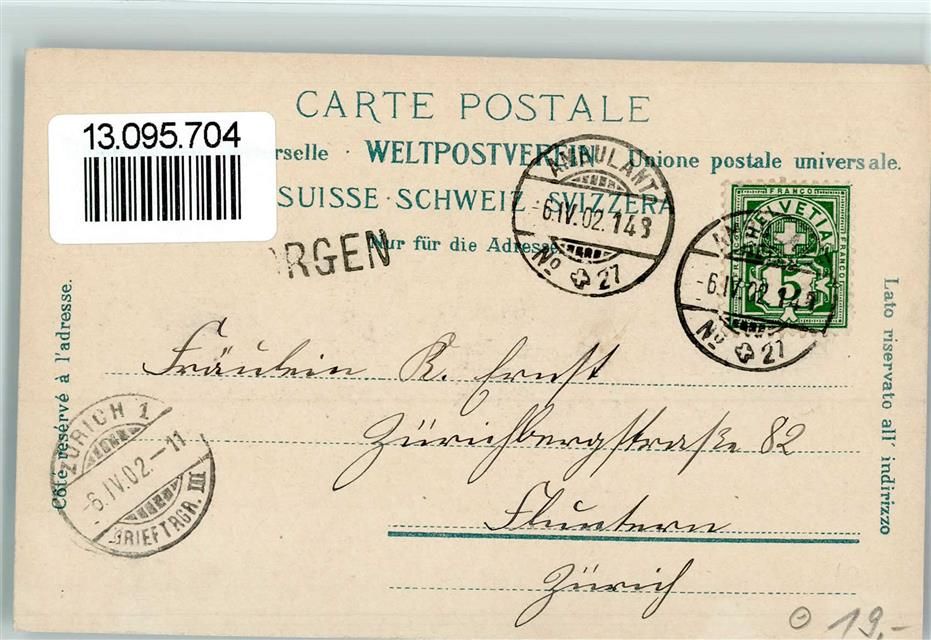 CARTE POSTALE
13.095.704
rselle · WELTPOSTVEREIN · Unione postale universale.
SUISSE · SCHWEIZ · SVIZZERA
Nur für die Adresse.
RGEN
AMBULANT
-6.IV.02.143
No 27
FRANCO
HELVETIA
FRANCO
FRANCO
5
-6.IV.02.143
No 27
Côté réservé à l'adresse.
Lato riservato all' indirizzo
Fräulein K. Ernst
Zürichbergstraße 82
Fluntern
Zürich
ZÜRICH 1
-6.IV.02.-11
BRIEFTRGR. III
19.-